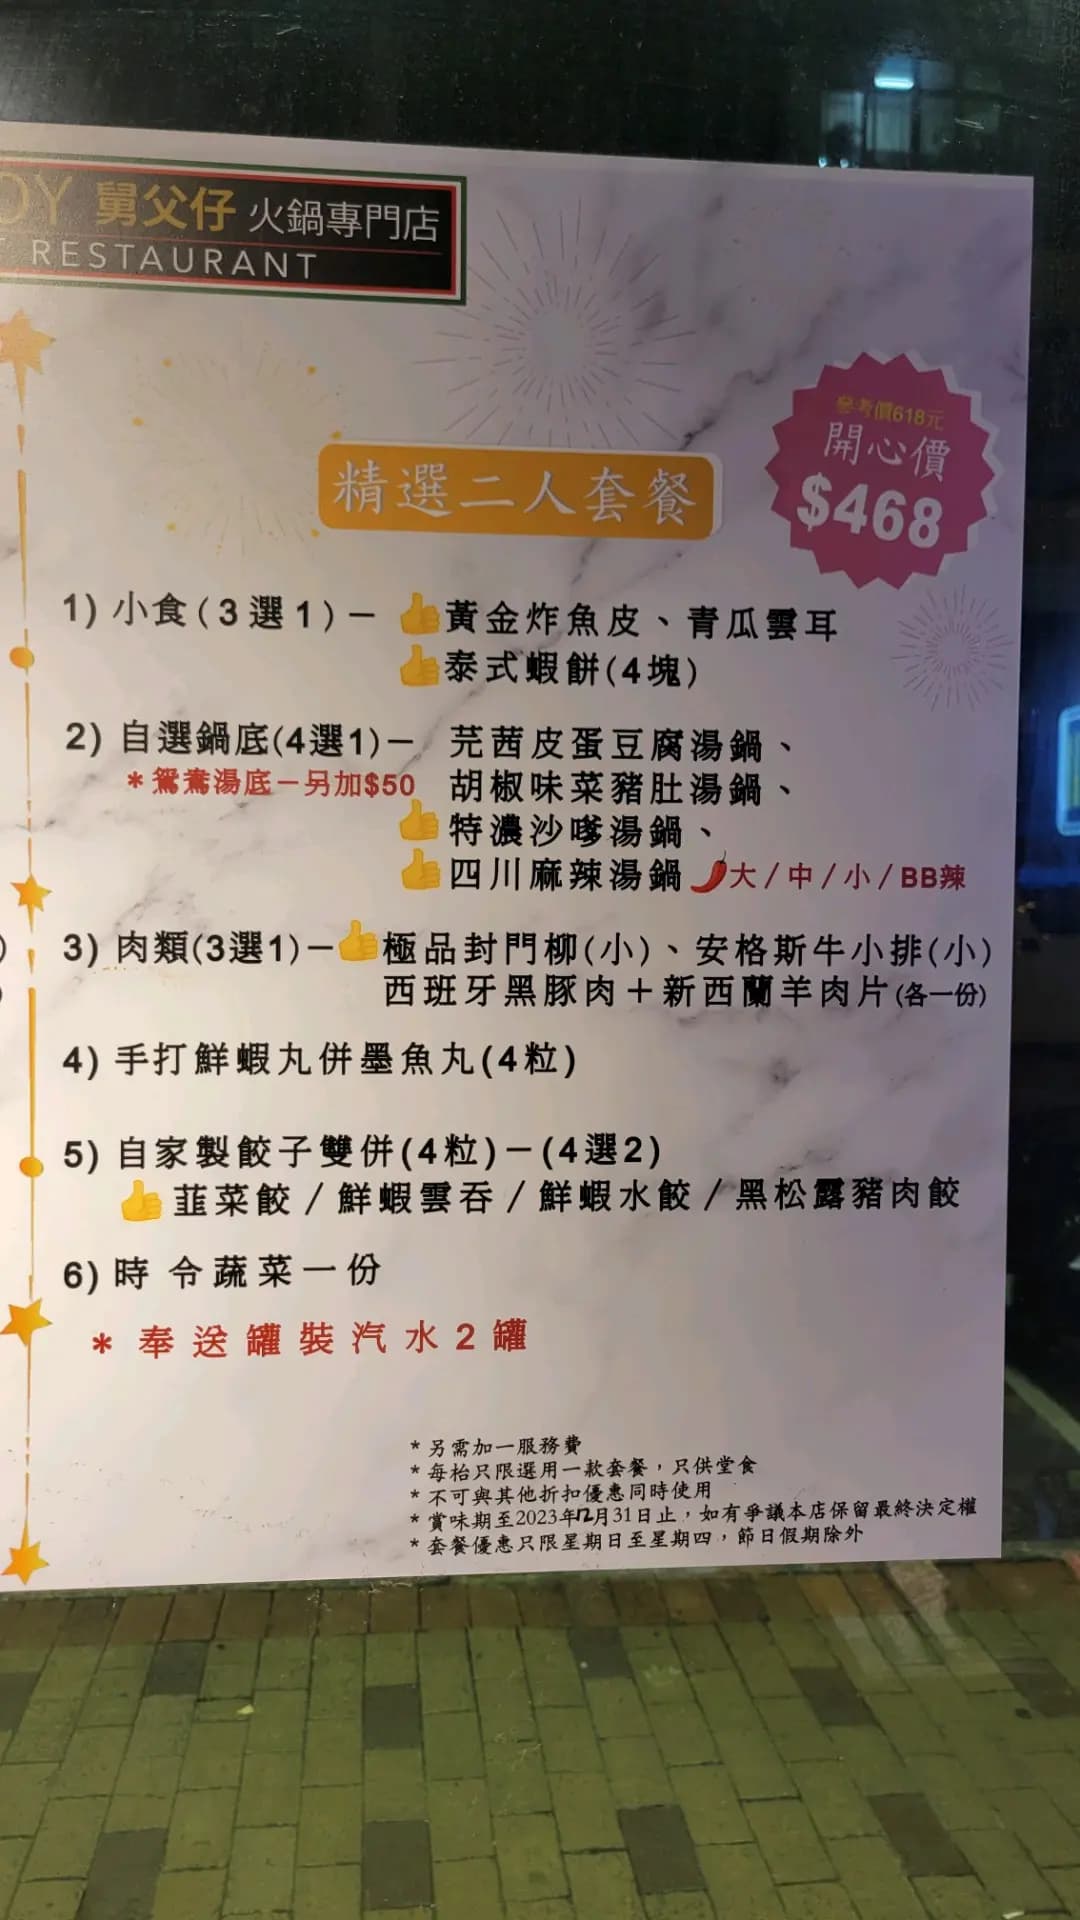 OY 舅父仔 火鍋專門店
RESTAURANT
參考價618元
開心價
$468
精選二人套餐
1) 小食(3選1)－ 👍黃金炸魚皮、青瓜雲耳
👍泰式蝦餅(4塊)
2) 自選鍋底(4選1)－ 芫茜皮蛋豆腐湯鍋、
*鴛鴦湯底－另加$50 胡椒味菜豬肚湯鍋、
👍特濃沙嗲湯鍋、
👍四川麻辣湯鍋🌶大/中/小/BB辣
3) 肉類(3選1)－👍極品封門柳(小)、安格斯牛小排(小)
西班牙黑豚肉＋新西蘭羊肉片(各一份)
4) 手打鮮蝦丸併墨魚丸(4粒)
5) 自家製餃子雙併(4粒)－(4選2)
👍韮菜餃/鮮蝦雲吞/鮮蝦水餃/黑松露豬肉餃
6) 時令蔬菜一份
*奉送罐裝汽水2罐
*另需加一服務費
*每枱只限選用一款套餐，只供堂食
*不可與其他折扣優惠同時使用
*賞味期至2023年12月31日止，如有爭議本店保留最終決定權
*套餐優惠只限星期日至星期四，節日假期除外